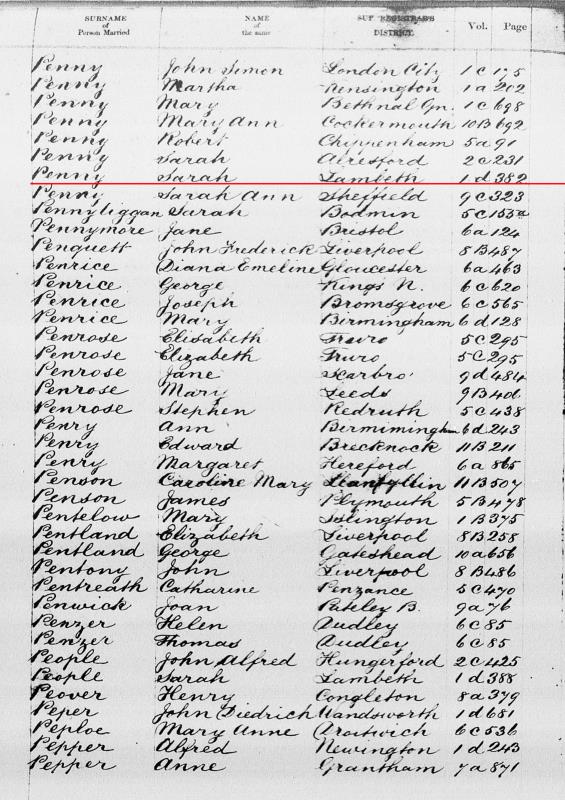 SURNAME of Person Married NAME of the same SUP. REGISTRAR'S DISTRICT. Vol. Page
Penny John Simon London City 1c 175
Penny Martha Kensington 1a 202
Penny Mary Bethnal Gn. 1c 698
Penny Mary Ann Cockermouth 10B 692
Penny Robert Chippenham 5a 91
Penny Sarah Alresford 2c 231
Penny Sarah Lambeth 1d 382
Penny Sarah Ann Sheffield 9c 323
Pennyliggan Sarah Bodmin 5c
Pennymore Jane Bristol 6a 124
Penquett John Frederick Liverpool 8B 487
Penrice Diana Emeline Gloucester 6a 463
Penrice George Kings N. 6c 620
Penrice Joseph Bromsgrove 6c 565
Penrice Mary Birmingham 6d 128
Penrose Elisabeth Truro 5c 295
Penrose Elizabeth Truro 5c 295
Penrose Jane Scarbro' 9d 484
Penrose Mary Leeds 9B 406
Penrose Stephen Redruth 5c 438
Penry Ann Birmimingham 6d 243
Penry Edward Brecknock 11B 211
Penry Margaret Hereford 6a 865
Penson Caroline Mary Llanfyllin 11B 507
Penson James Plymouth 5B 478
Pentelow Mary Islington 1B 375
Pentland Elizabeth Liverpool 8B 258
Pentland George Gateshead 10a 656
Pentony John Liverpool 8B 486
Pentreath Catharine Penzance 5c 470
Penwick Joan Pateley B. 9a 76
Penzer Helen Dudley 6c 85
Penzer Thomas Dudley 6c 85
People John Alfred Hungerford 2c 425
People Sarah Lambeth 1d 388
Peover Henry Congleton 8a 379
Peper John Diedrich Wandsworth 1d 681
Peploe Mary Anne Droitwich 6c 536
Pepper Alfred Newington 1d 243
Pepper Anne Grantham 7a 871